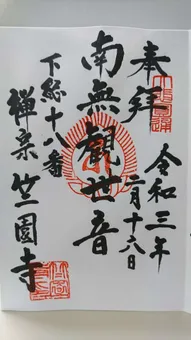 奉拝
令和三年
二月十六日
南無觀世音
下総十八番
禅宗竺園寺